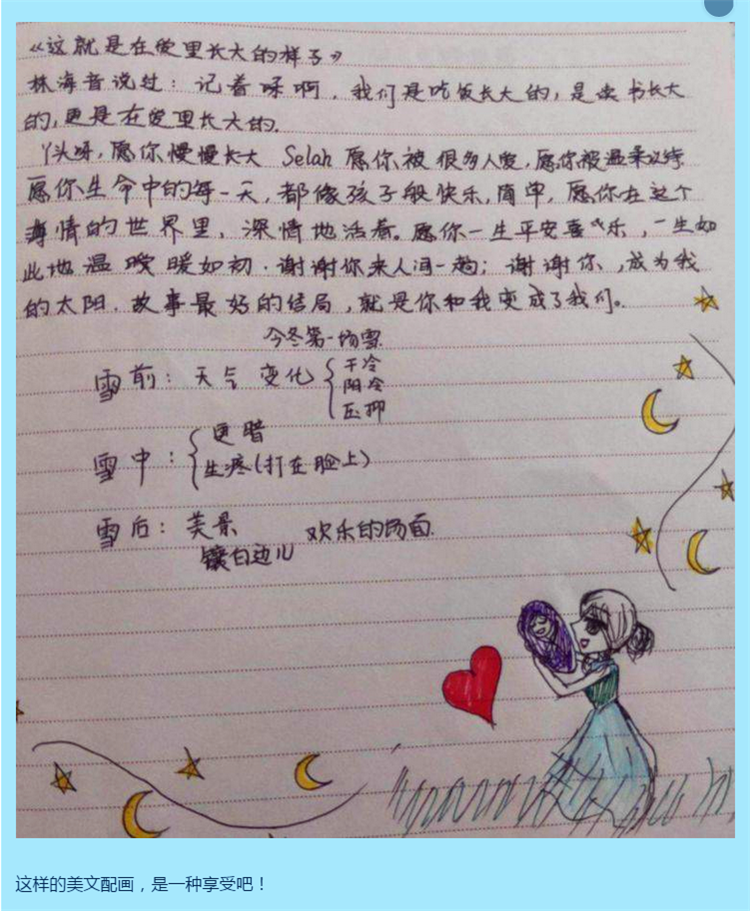 《这就是在爱里长大的样子》
林海音说过：记着呀啊，我们是吃饭长大的，是读书长大
的，更是在爱里长大的。
丫头呀，愿你慢慢长大 Selah 愿你被很多人爱，愿你被温柔以待
愿你生命中的每一天，都像孩子般快乐，简单，愿你在这个
薄情的世界里，深情地活着。愿你一生平安喜乐，一生如
此地温暖暖如初。谢谢你来人间一趟；谢谢你，成为我
的太阳。故事最好的结局，就是你和我变成了我们。
今冬第一场雪
雪前：天气变化{干冷
阴冷
压抑
雪中：{更暗
生疼(打在脸上)
雪后：美景 欢乐的场面.
镶白边儿
这样的美文配画，是一种享受吧！